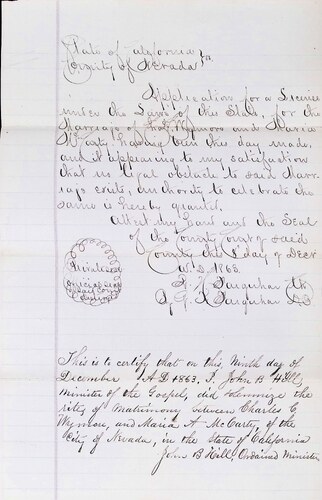 State of California
County of Nevada } ss.
Application for a License
under the Laws of this State, for the
Marriage of Chas. Wymore and Maria
McCarty, having been this day made,
and it appearing to my satisfaction
that no legal obstacle to said Marri-
age exists, authority to celebrate the
same is hereby granted.
Attest my hand and the Seal
of the County Court of said
County this day of Decr
A.D. 1863.
R. H. Farquhar Clk
G. K. Farquhar
This is to certify that on this, Ninth day of
December A D 1863, I, John B Hill,
Minister of the Gospel, did solemnize the
rites of Matrimony between Charles C
Wymore, and Maria A McCarty, of the
City of Nevada, in the State of California
John B Hill, Ordained Minister